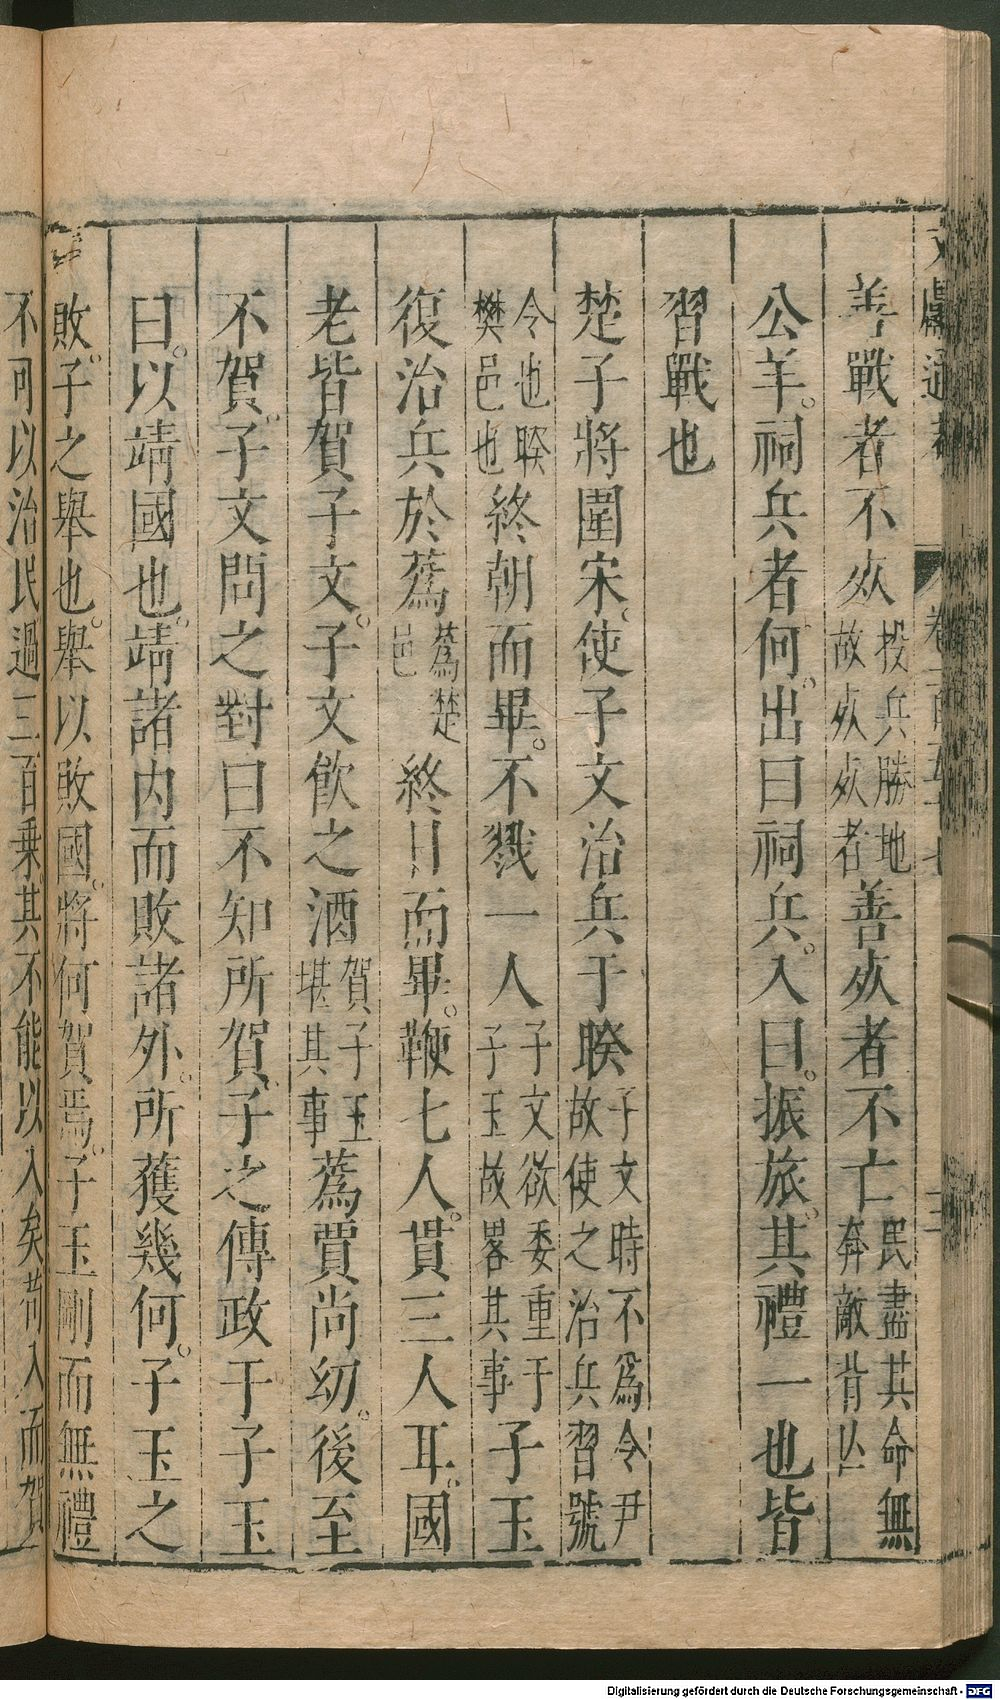 善戰者不𣦸投兵勝地故𣦸𣦸者善𣦸者不亡民盡其命無奔敵背亾
公羊祠兵者何出曰祠兵入曰振旅其禮一也皆
習戰也
楚子將圍宋使子文治兵于睽子文時不爲令尹故使之治兵習號
令也睽樊邑也終朝而畢不戮一人子文欲委重于子玉故畧其事子玉
復治兵於蒍蒍楚邑終日而畢鞭七人貫三人耳國
老皆賀子文子文飲之酒賀子玉堪其事蒍賈尚幼後至
不賀子文問之對曰不知所賀子之傳政于子玉
曰以靖國也靖諸内而敗諸外所獲幾何子玉之
敗子之舉也舉以敗國將何賀焉子玉剛而無禮
不可以治民過三百乗其不能以入矣苟入而賀
Digitalisierung gefördert durch die Deutsche Forschungsgemeinschaft - DFG